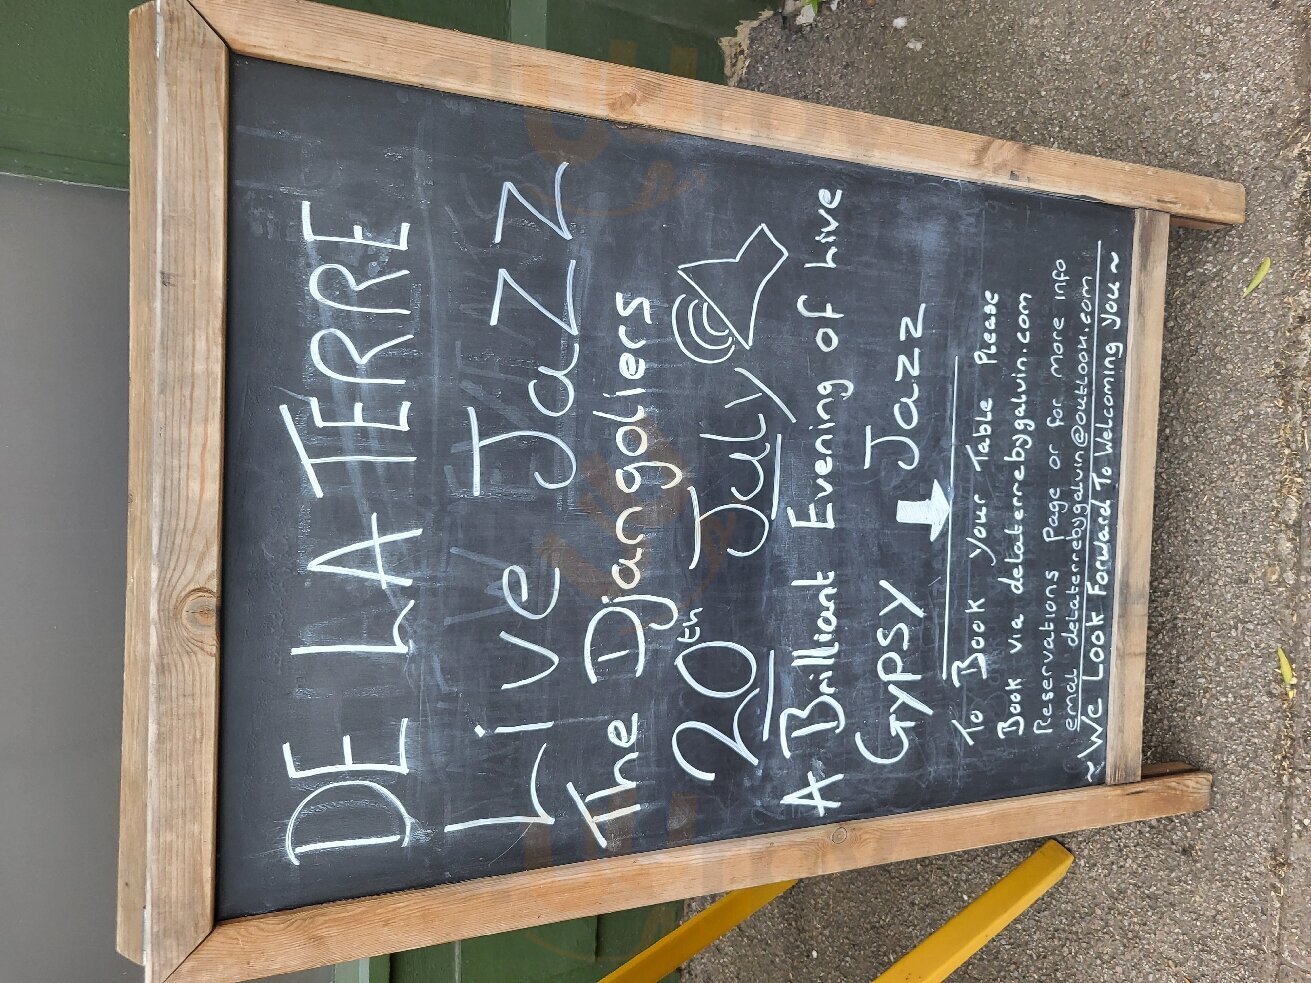 DE LA TERRE
Live Jazz
The Djangoliers
20th July
A Brilliant Evening of Live
Gypsy Jazz
To Book your Table Please
Book via delaterrebygalvin.com
Reservations Page or for more info
email delaterrebygalvin@outlook.com
~ We Look Forward To Welcoming you ~